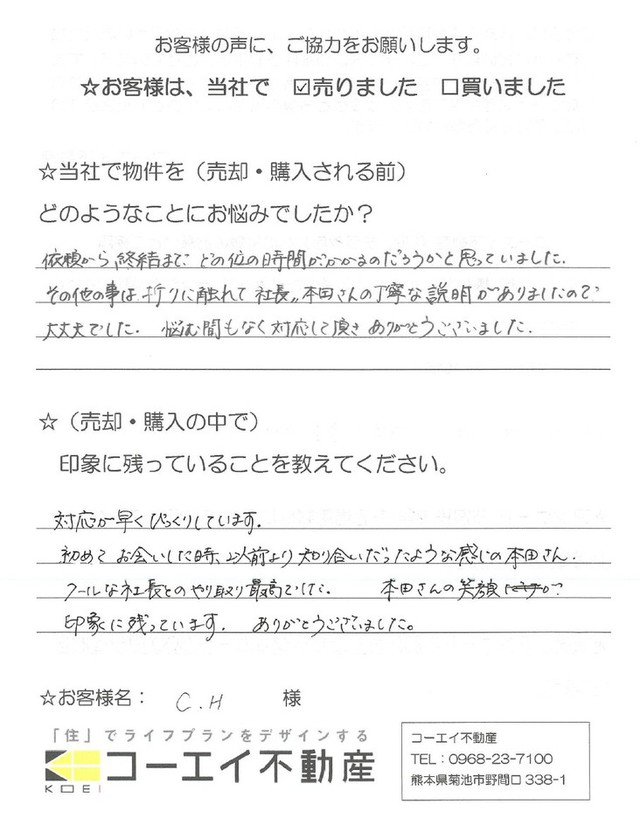 お客様の声に、ご協力をお願いします。
☆お客様は、当社で ☑売りました □買いました
☆当社で物件を（売却・購入される前）
どのようなことにお悩みでしたか？
依頼から終結まで、どの位の時間がかかるのだろうかと思っていました。
その他の事は折りに触れて社長、本田さんの丁寧な説明がありましたので
大丈夫でした。悩む間もなく対応して頂きありがとうございました。
☆（売却・購入の中で）
印象に残っていることを教えてください。
対応が早くびっくりしています。
初めてお会いした時、以前より知り合いだったような感じの本田さん。
クールな社長とのやり取り最高でした。 本田さんの笑顔が
印象に残っています。ありがとうございました。
☆お客様名： C.H 様
「住」でライフプランをデザインする
KOEI コーエイ不動産
コーエイ不動産
TEL：0968-23-7100
熊本県菊池市野間口 338-1